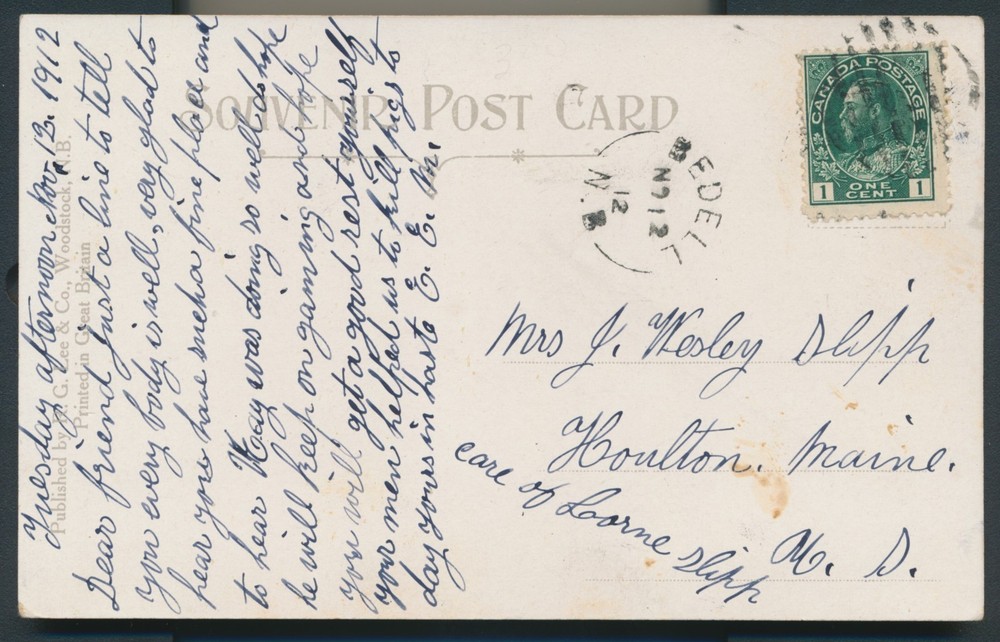 Tuesday afternoon Nov. 12. 1912
Dear friend Just a line to tell
you every body is well, very glad to
hear you have such a fine place and
to hear Hay was doing so well ads hope
he will keep on gaining and hope
you will get a good rest yourself
your men helped us to kill pigs to
day yours in hast E. E. M.
Published by R. G. Lee & Co., Woodstock, N.B.
Printed in Great Britain
SOUVENIR POST CARD
BEDELL
NO 12
12
N. B
CANADA POSTAGE
1 ONE CENT 1
Mrs J. Wesley Slipp
Houlton. Maine.
care of Lorne Slipp
U. S.